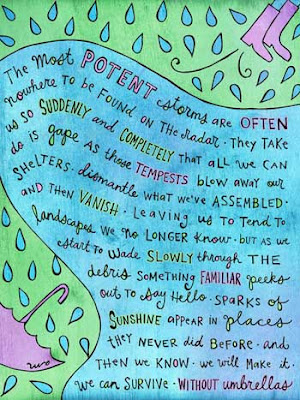 The Most POTENT storms are OFTEN
nowhere to be found on the radar · They take
us so SUDDENLY and COMPLETELY that all we can
do is gape as those TEMPESTS blow away our
shelters · dismantle what we've ASSEMBLED ·
and then VANISH · Leaving us to Tend to
landscapes we no LONGER know · but as we
start to wade SLOWLY through THE
debris something FAMILIAR peeks
out to say Hello · SPARKS of
SUNSHINE appear in places
they NEVER did BEFORE · and
THEN we KNOW · we will MAKE it ·
we can SURVIVE · WITHOUT umbrellas